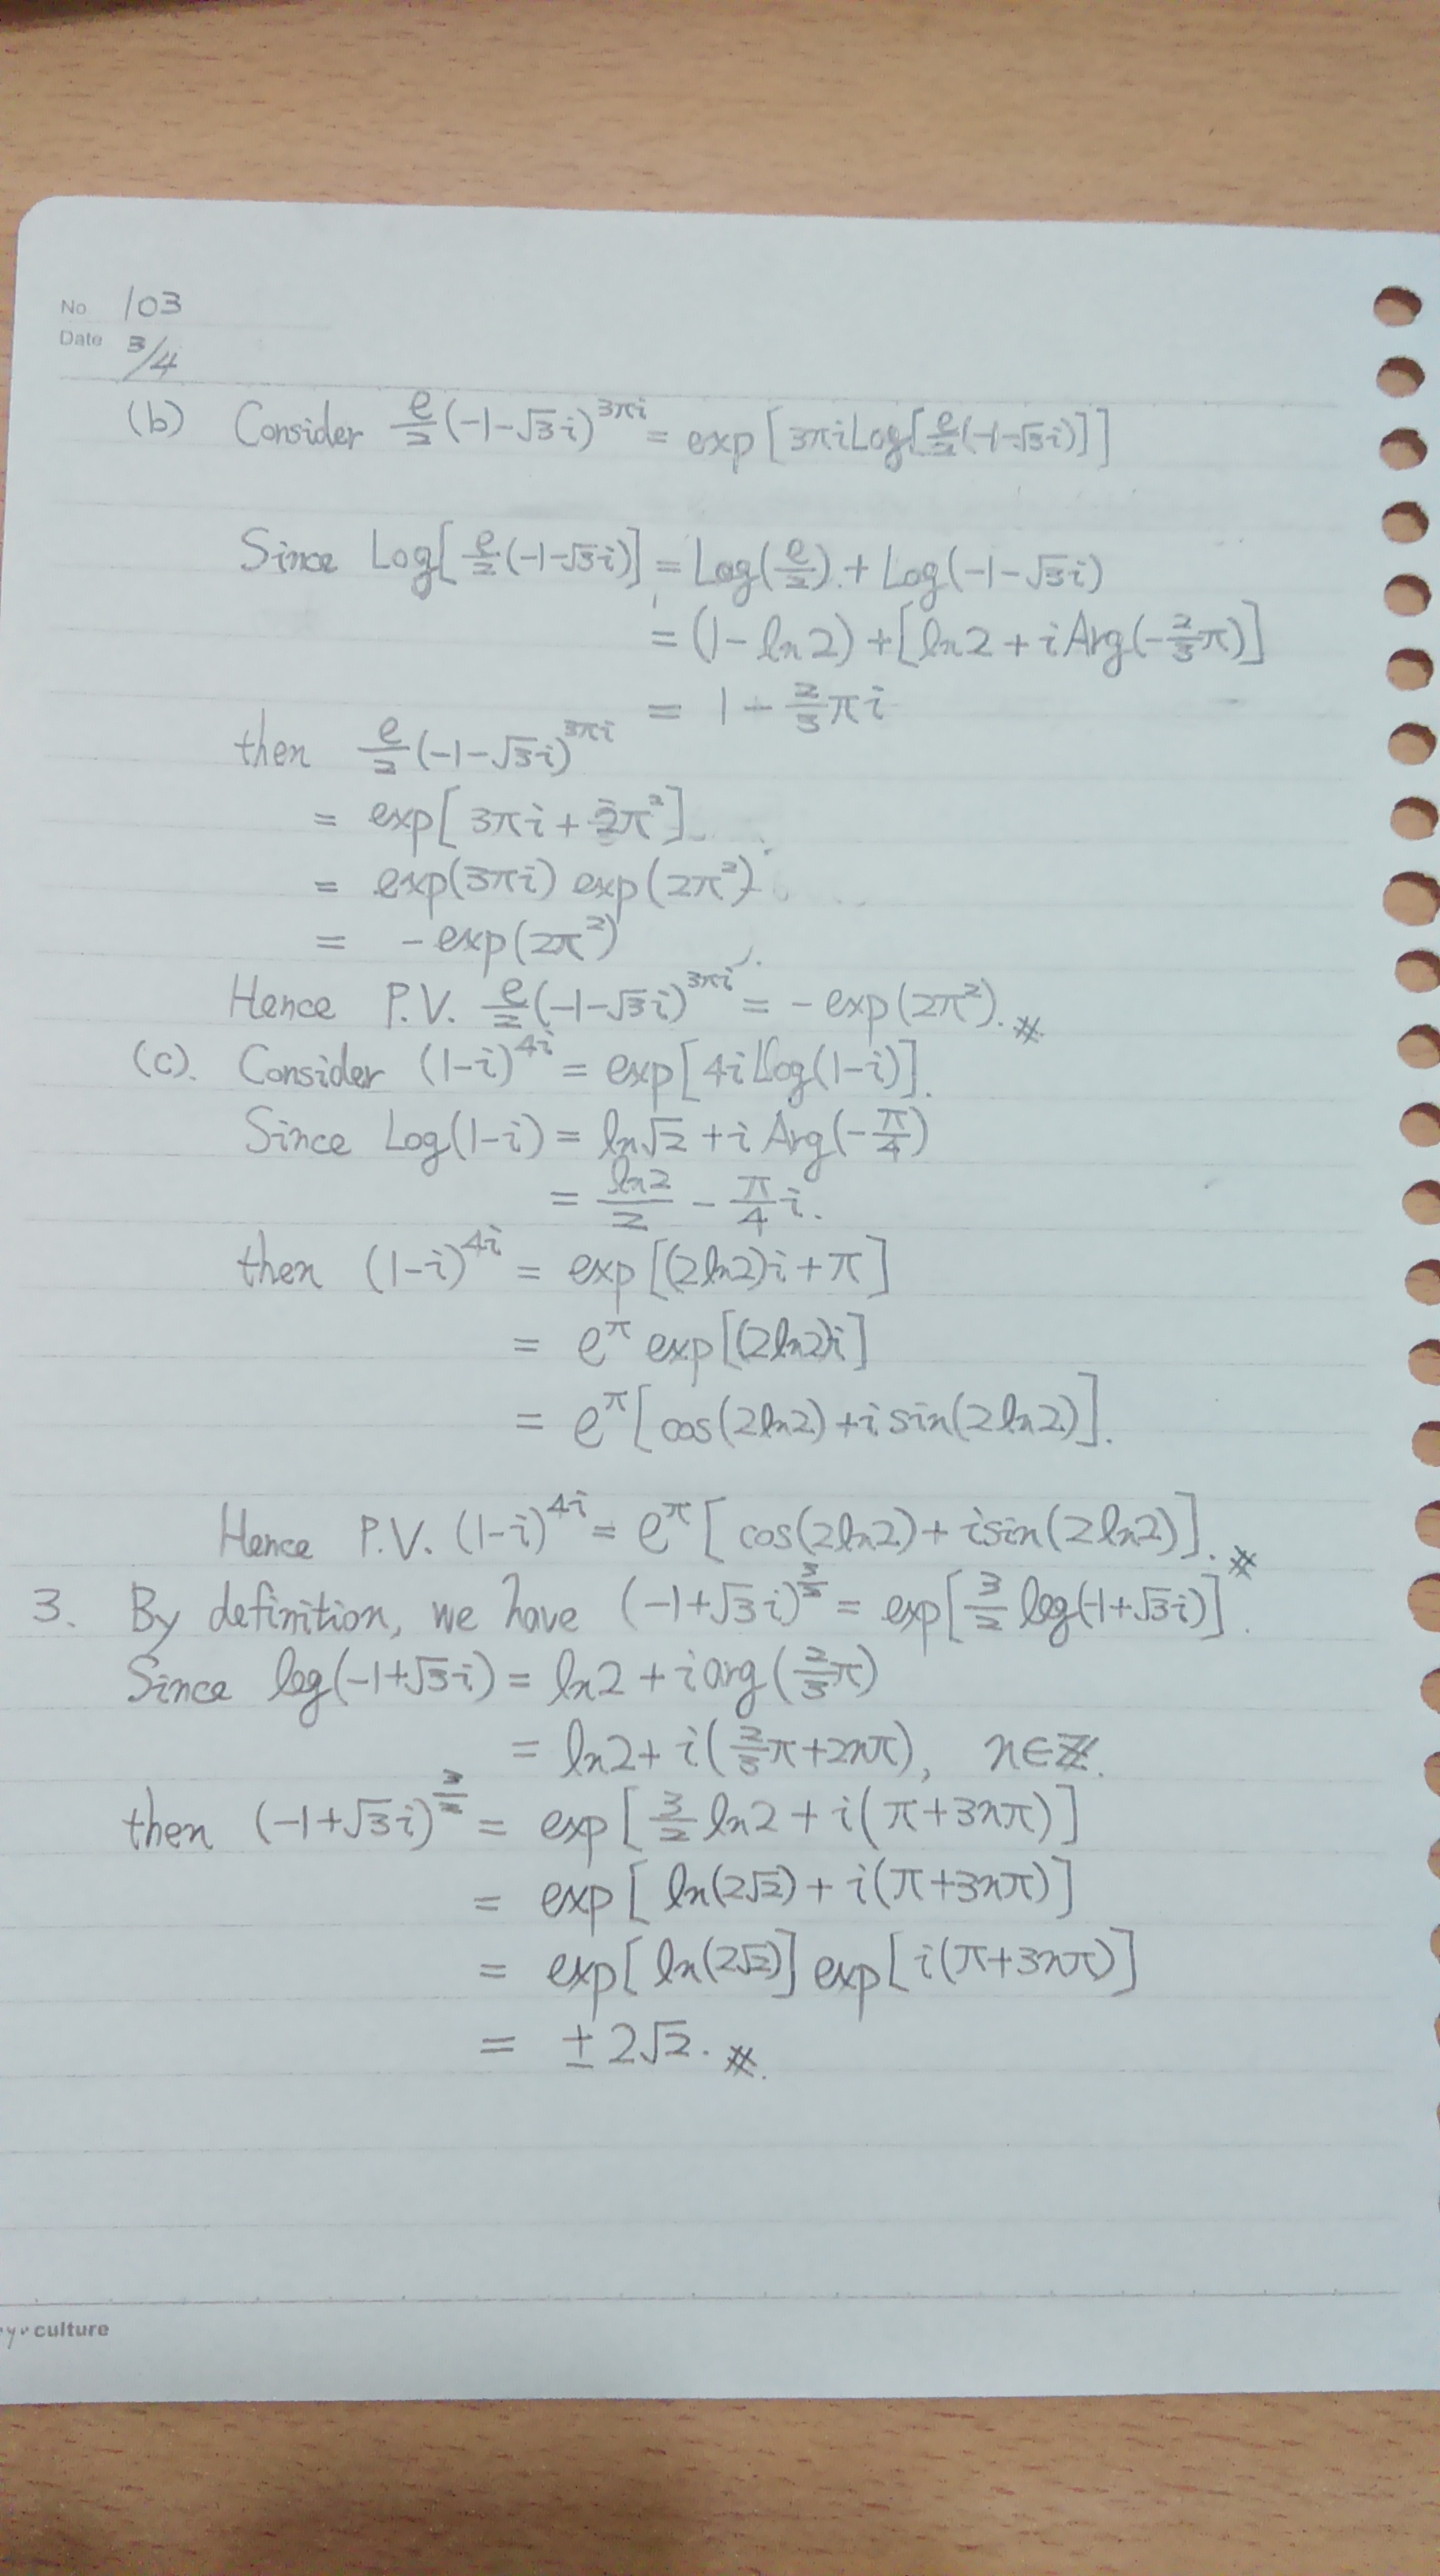 No 103
Date 3/4
(b) Consider e/2(-1-√3i)^3πi = exp[3πiLog[e/2(-1-√3i)]]
Since Log[e/2(-1-√3i)] = Log(e/2) + Log(-1-√3i)
= (1-ln2) + [ln2 + i Arg(-2/3π)]
= 1 - 2/3πi
then e/2(-1-√3i)^3πi
= exp[3πi + 2π²]
= exp(3πi) exp(2π²)
= -exp(2π²)
Hence P.V. e/2(-1-√3i)^3πi = -exp(2π²). #
(c). Consider (1-i)^4i = exp[4i Log(1-i)].
Since Log(1-i) = ln√2 + i Arg(-π/4)
= ln2/2 - π/4 i.
then (1-i)^4i = exp[(2ln2)i + π]
= e^π exp[(2ln2)i]
= e^π[cos(2ln2) + i sin(2ln2)].
Hence P.V. (1-i)^4i = e^π[cos(2ln2) + isin(2ln2)]. #
3. By definition, we have (-1+√3i)^3/2 = exp[3/2 log(-1+√3i)].
Since log(-1+√3i) = ln2 + i arg(2/3π)
= ln2 + i(2/3π + 2nπ), n∈ℤ.
then (-1+√3i)^3/2 = exp[3/2 ln2 + i(π+3nπ)]
= exp[ln(2√2) + i(π+3nπ)]
= exp[ln(2√2)] exp[i(π+3nπ)]
= ±2√2. #.
culture